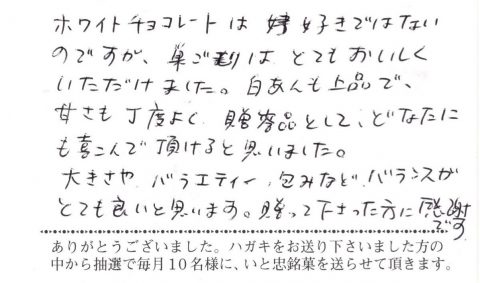 ホワイトチョコレートは 好きではない
のですが、巣ごもりは とてもおいしく
いただけました。白あんも上品で、
甘さも丁度よく 贈答品として、どなたに
も喜こんで頂けると思いました。
大きさや バラエティー、包みなど バランスが
とても良いと思います。贈って下さった方に 感謝
です
ありがとうございました。ハガキをお送り下さいました方の
中から抽選で毎月10名様に、いと忠銘菓を送らせて頂きます。